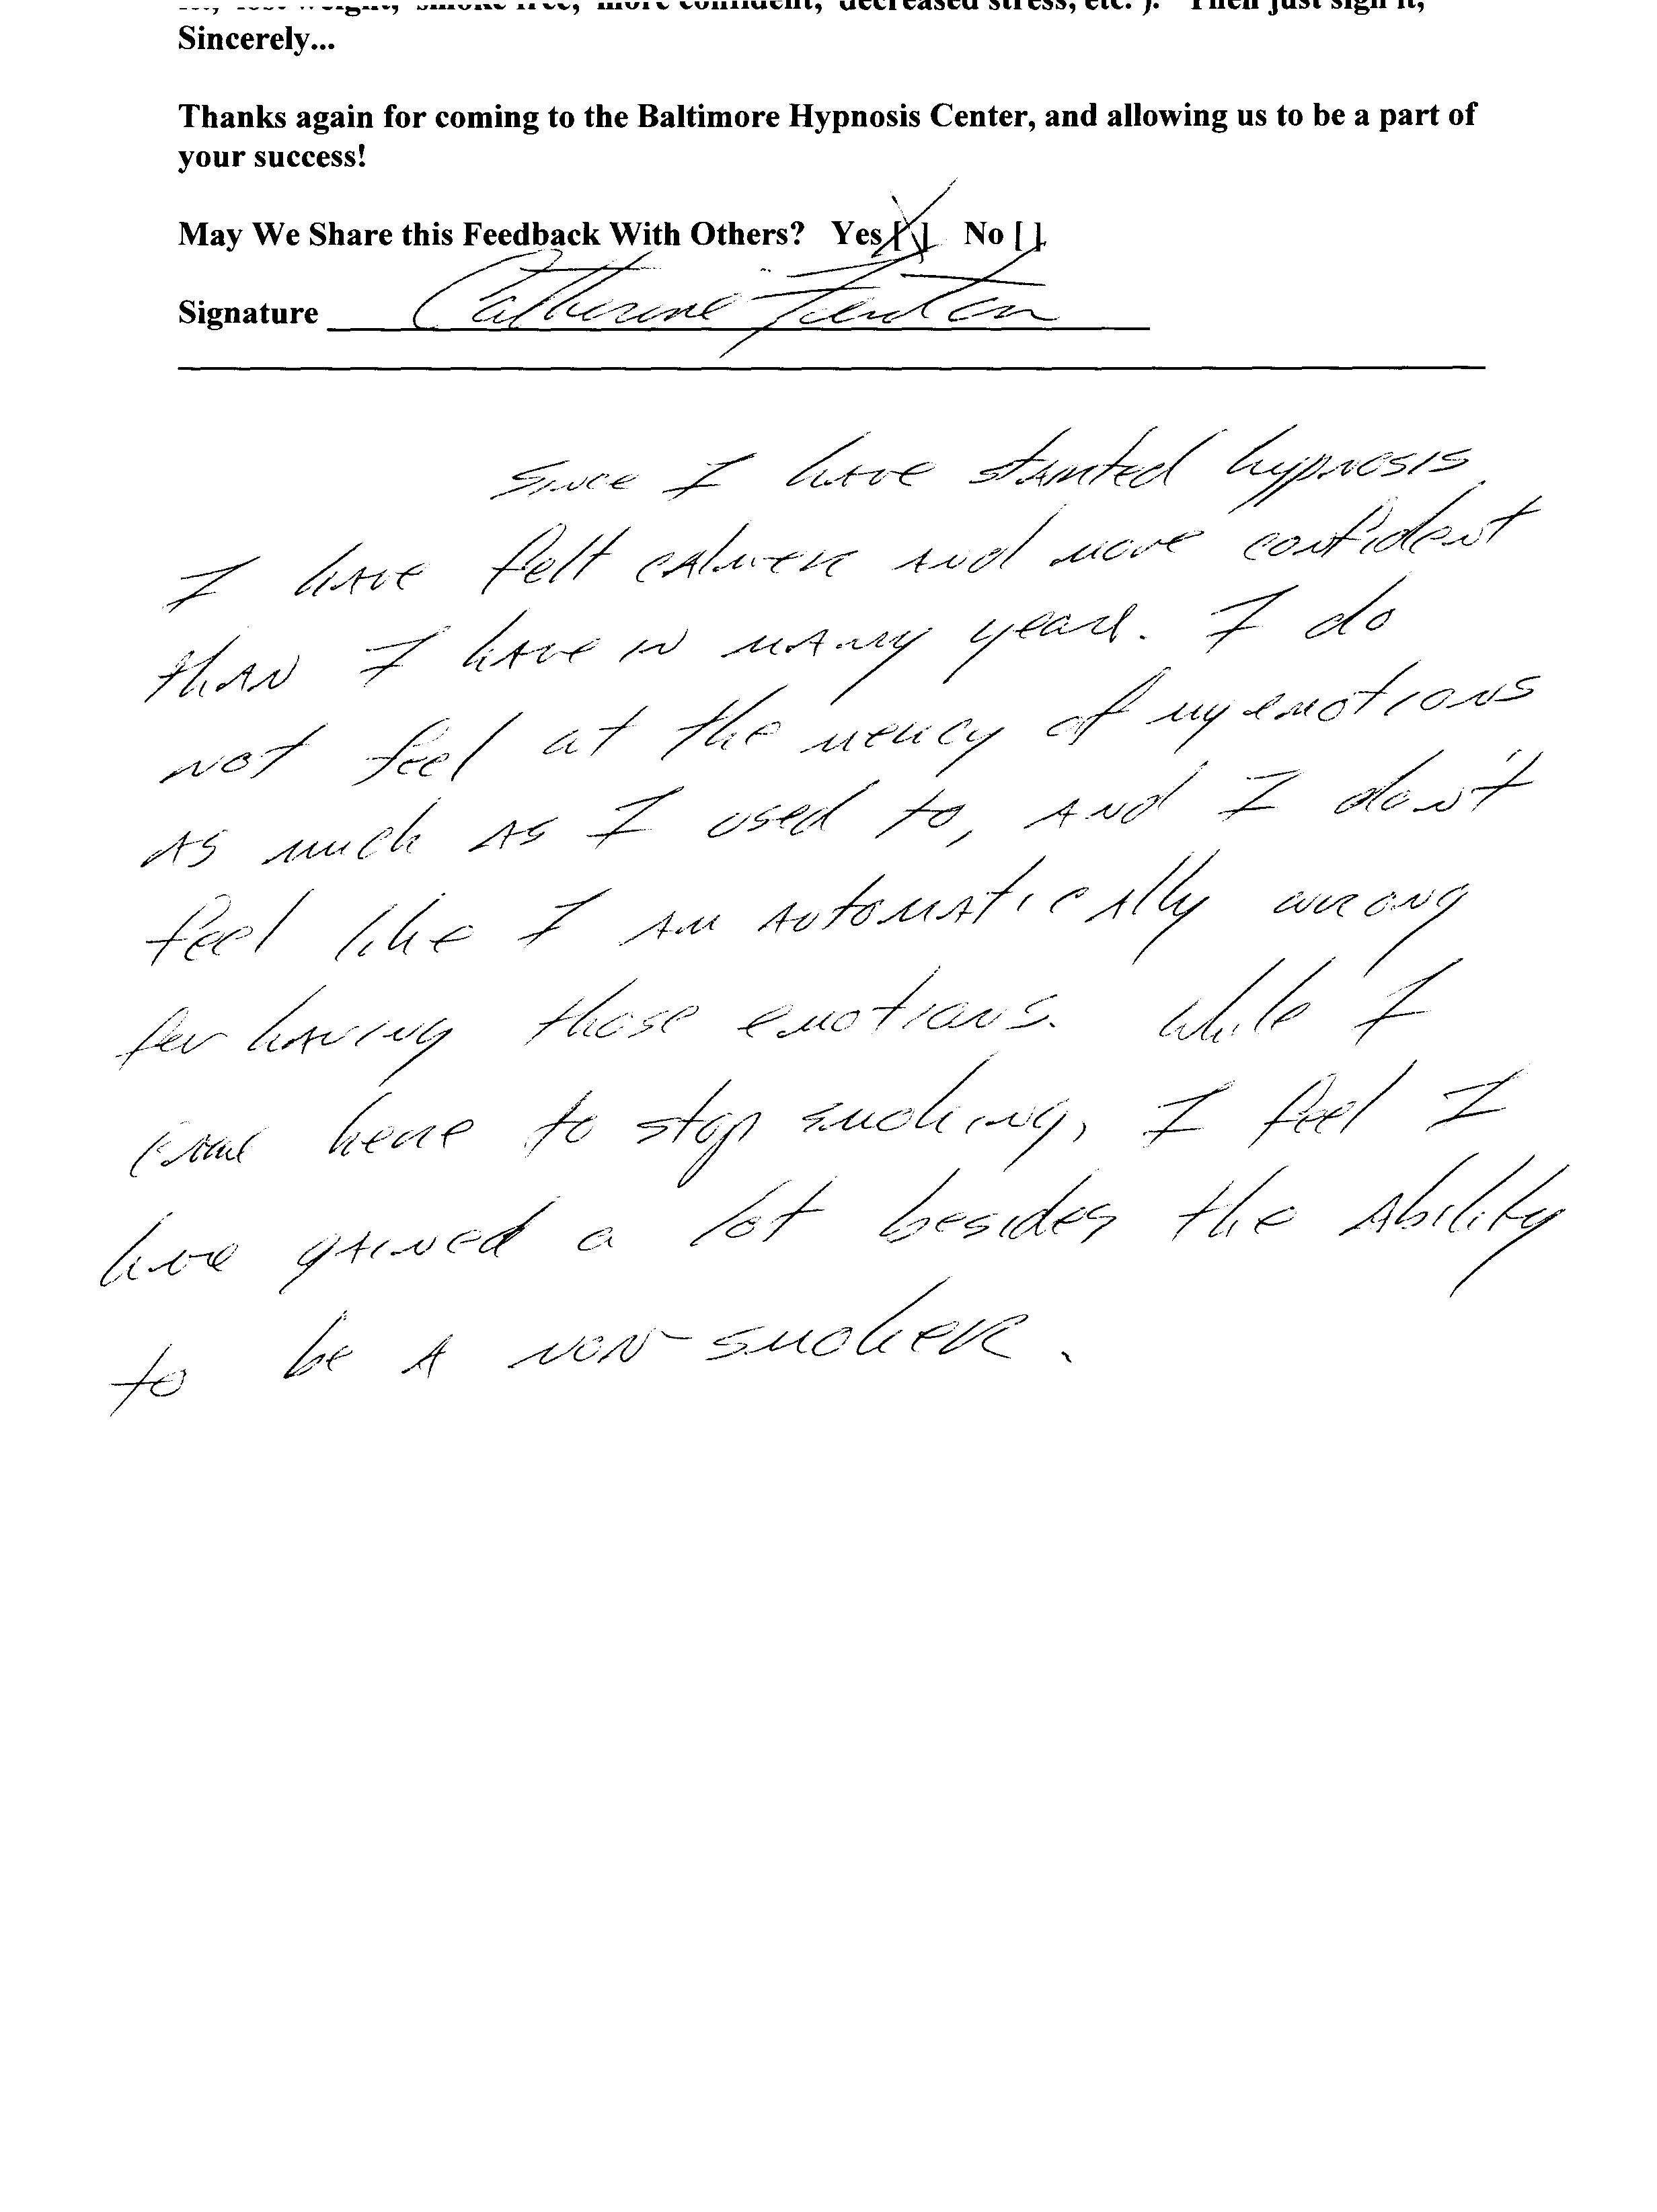 lost weight, smoke free, more confident, decreased stress, etc.). Then just sign it,
Sincerely...
Thanks again for coming to the Baltimore Hypnosis Center, and allowing us to be a part of
your success!
May We Share this Feedback With Others? Yes [X] No [ ]
Signature Catherine Fenton
Since I have started hypnosis
I have felt calmer and more confident
than I have in many years. I do
not feel at the mercy of my emotions
as much as I used to, and I don't
feel like I am automatically wrong
for having those emotions. While I
came here to stop smoking, I feel I
have gained a lot besides the ability
to be a non-smoker.